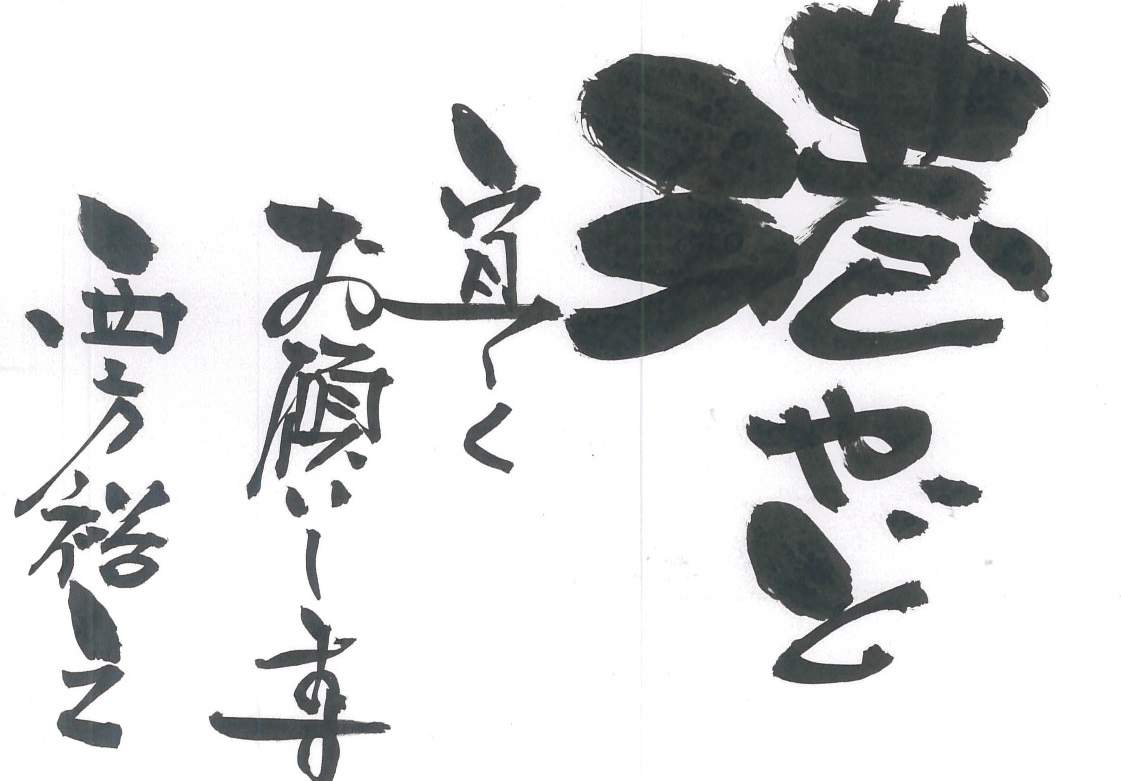 港やど
宜しく
お願いします
西方裕之